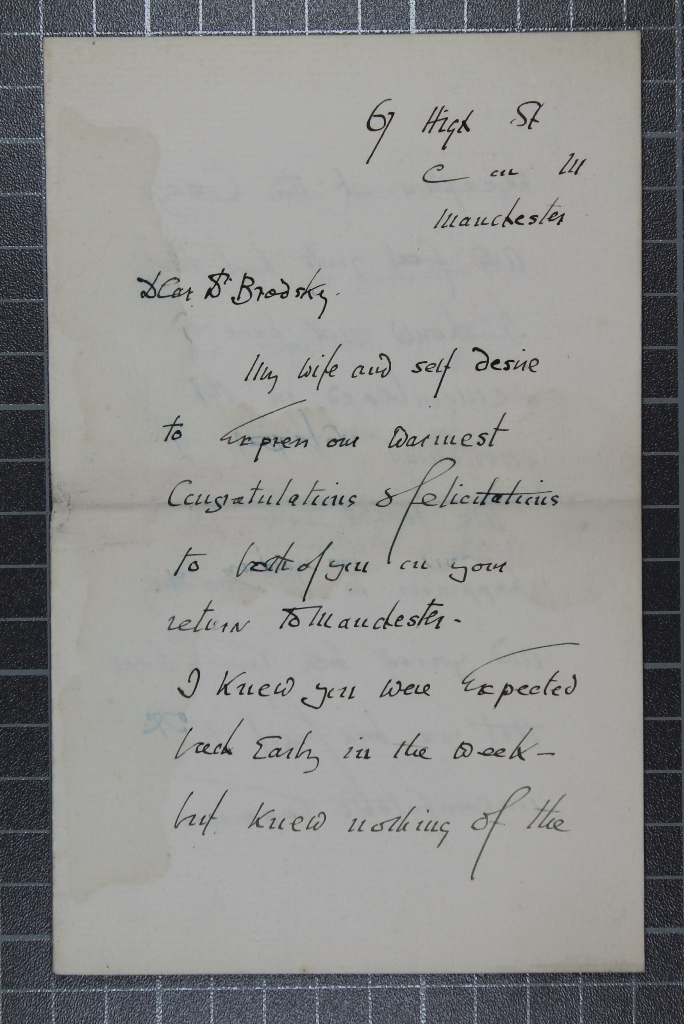 67 High St
C on M
Manchester
Dear Dr Brodsky.
My wife and self desire
to Express our warmest
Congratulations & felicitations
to both of you on your
return to Manchester-
I knew you were Expected
back Early in the week-
but knew nothing of the